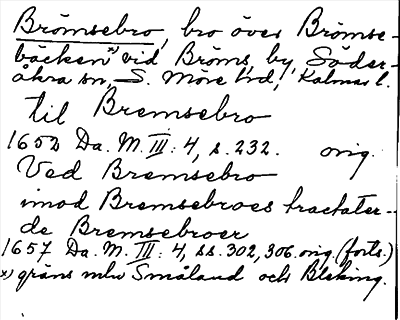 Brömsebro, bro över Brömse-
bäcken*) vid Bröms, by, Söder-
åkra sn, S. Möre hd, Kalmar l.
til Bremsebro
1652 Da. M. III: 4, s. 232. orig.
Ved Bremsebro
imod Bremsebroes tractater-
de Bremsebroer
1657 Da. M. III: 4, ss. 302, 306. orig. (forts.)
*) gräns mln Småland och Bleking.